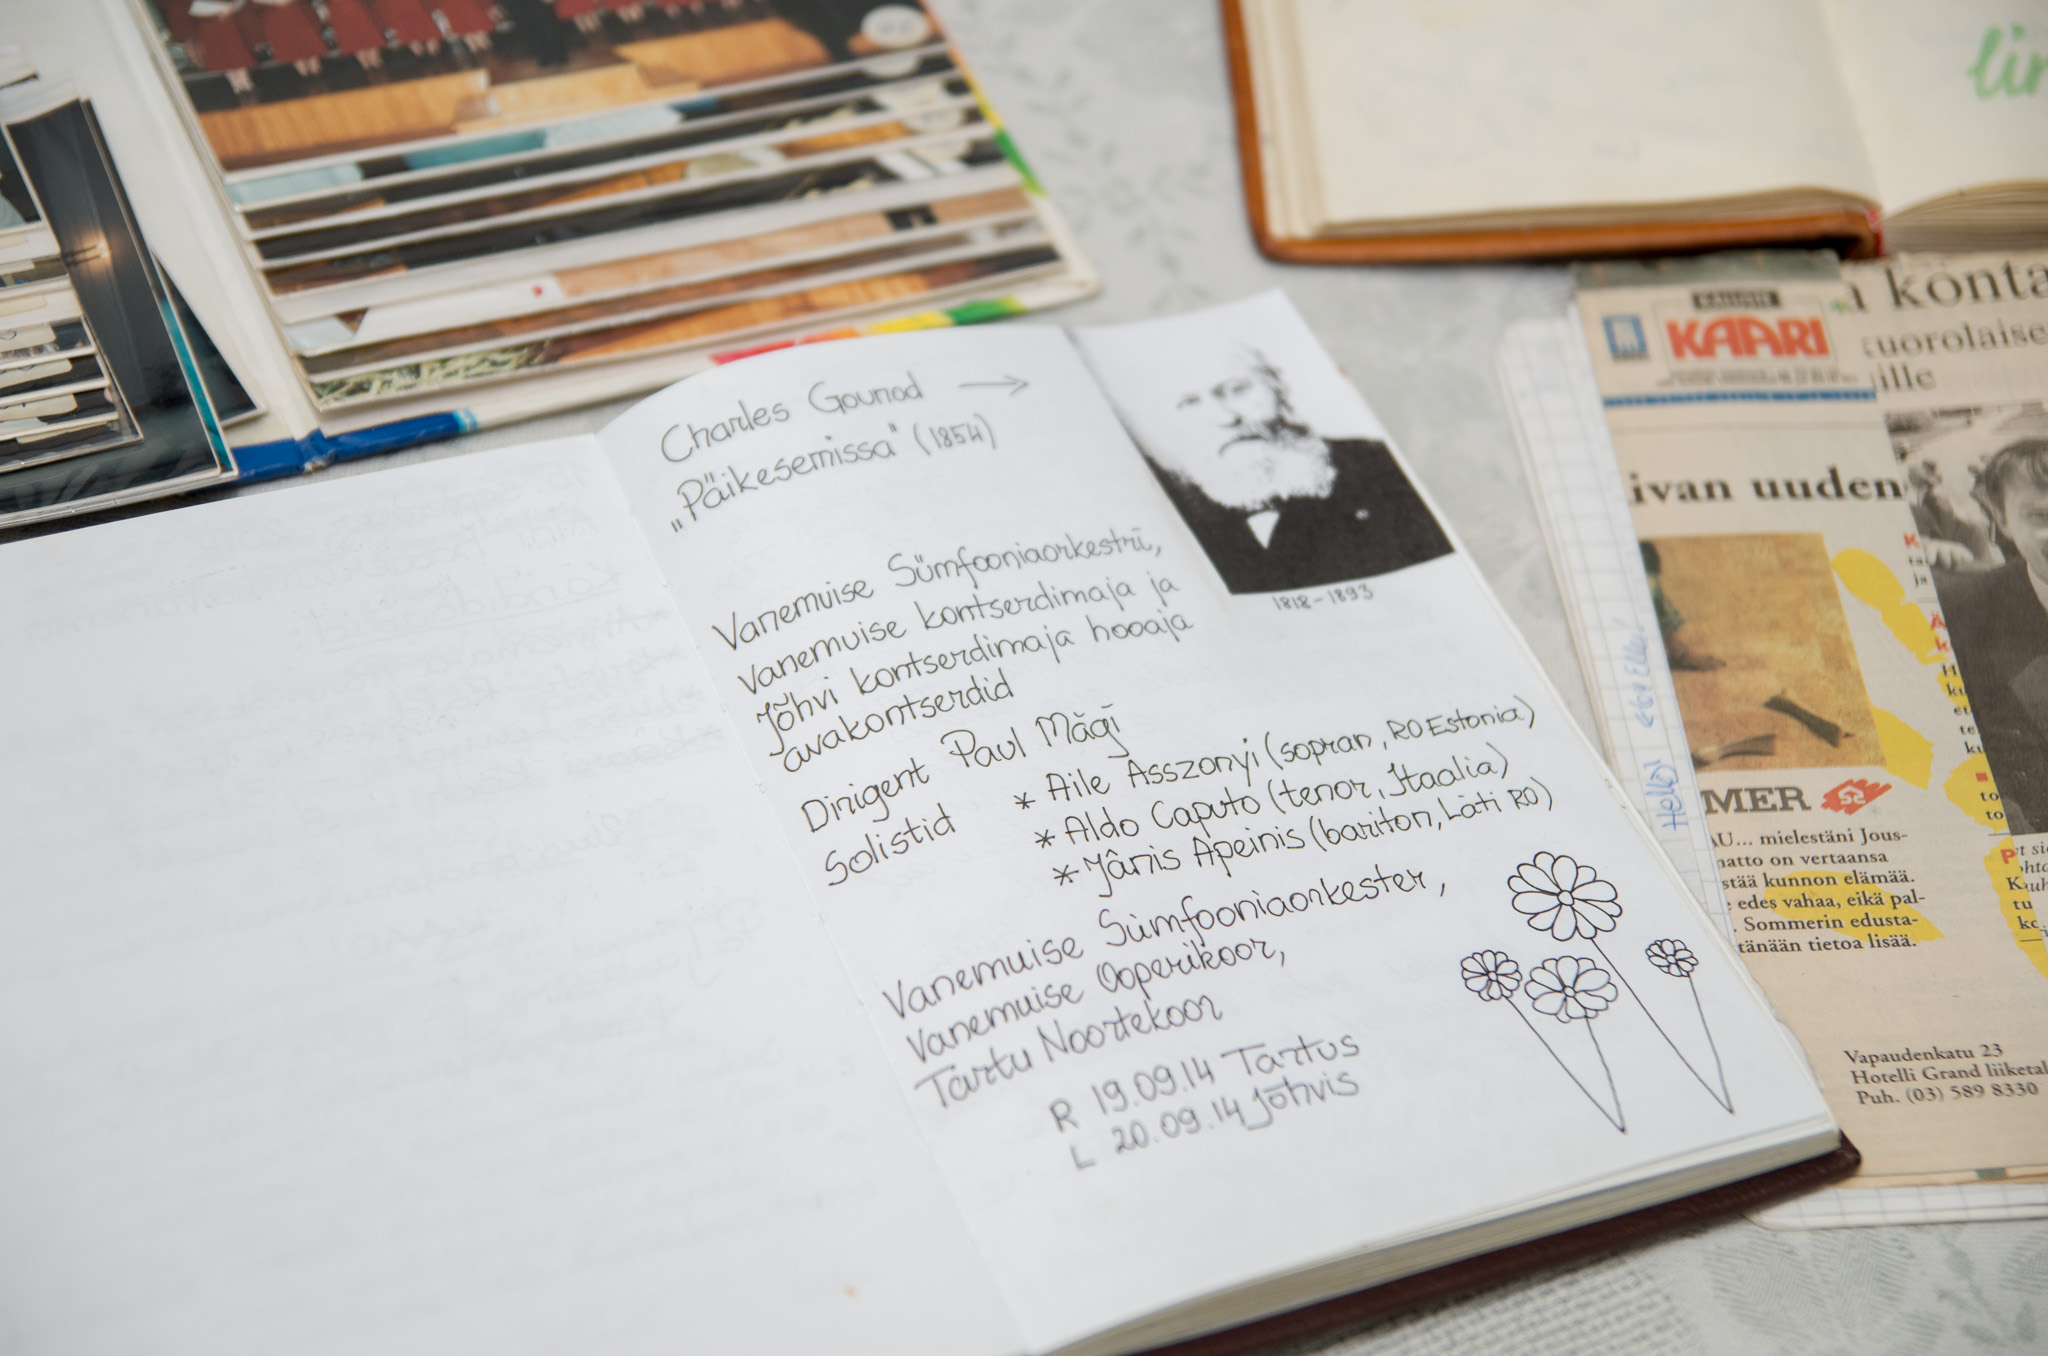 Charles Gounod →
„Päikesemissa" (1854)
1818-1893
Vanemuise Sümfooniaorkestri,
Vanemuise kontserdimaja ja
Jõhvi kontserdimaja hooaja
avakontserdid
Dirigent Paul Mägi
Solistid * Aile Asszonyi (sopran, RO Estonia)
* Aldo Caputo (tenor, Itaalia)
* Jânis Apeinis (bariton, Läti RO)
Vanemuise Sümfooniaorkester,
Vanemuise Ooperikoor,
Tartu Noortekoor
R 19.09.14 Tartus
L 20.09.14 Jõhvis
lin
KAARI
a konta
uorolaise
ille
ivan uuden
MER
AU... mielestäni Jous-
natto on vertaansa
stää kunnon elämää.
edes vahaa, eikä pal-
. Sommerin edusta-
tänään tietoa lisää.
Vapaudenkatu 23
Hotelli Grand liiketal
Puh. (03) 589 8330